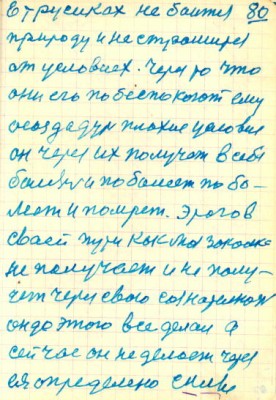 В трусиках не боится 80
природу и не страшится
от условиех. Через то что
они его побеспокоют ему
создадут плохие условия
он через их получат в себе
и поболеет по бо-
леет и помрет. Этого в
своей пути как
не получает и не полу-
чет через свою
он до этого все делал а
сейчас он не делает через
определено